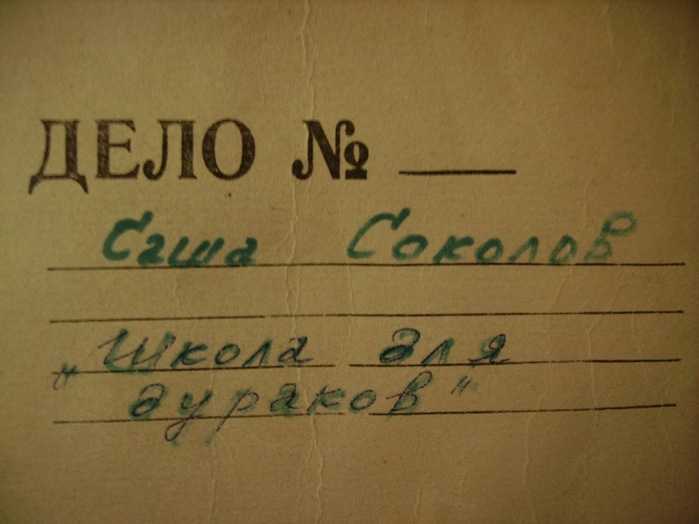 ДЕЛО № ___
Саша Соколов
„Школа для
дураков"